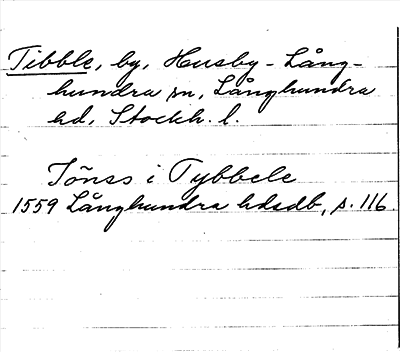 Tibble, by, Husby-Lång-
hundra sn, Långhundra
hd, Stockh. l.
Jönss i Tybbele
1559 Långhundra hdsdb, s. 116.